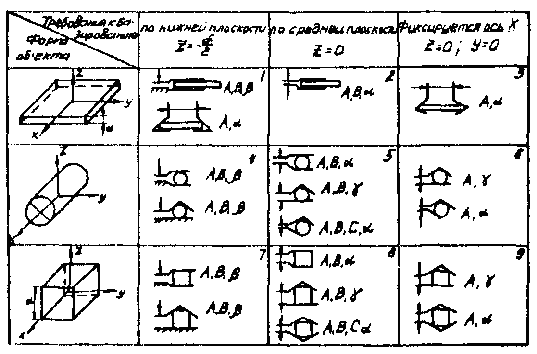 Требования к ба-
зированию
Форма
объекта
по нижней плоскости
Z=-d/2
по средней плоскости
Z=0
Фиксируется ось X
Z=0; y=0
Z
y
x
d
1
A,B,β
A,α
2
A,B,α
3
A,α
Z
y
4
A,B,β
A,B,β
5
A,B,α
A,B,γ
A,B,C,α
6
A,γ
A,α
Z
y
x
d
7
A,B,β
A,B,β
8
A,B,α
A,B,γ
A,B,Cα
9
A,γ
A,α